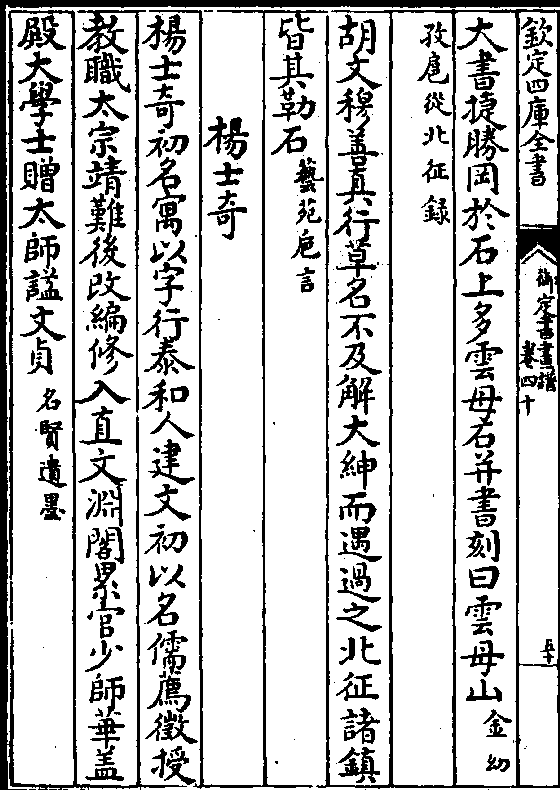 欽定四庫全書
御定書畫譜
卷四十
五十
大書捷勝岡於石上多雲母石并書刻曰雲母山金幼
孜扈從北征録
胡文穆善真行草名不及解大紳而遇過之北征諸鎮
皆其勒石藝苑巵言
楊士奇
楊士奇初名寓以字行泰和人建文初以名儒薦徵授
教職太宗靖難後改編修入直文淵閣累官少師華盖
殿大學士贈太師諡文貞名賢遺墨